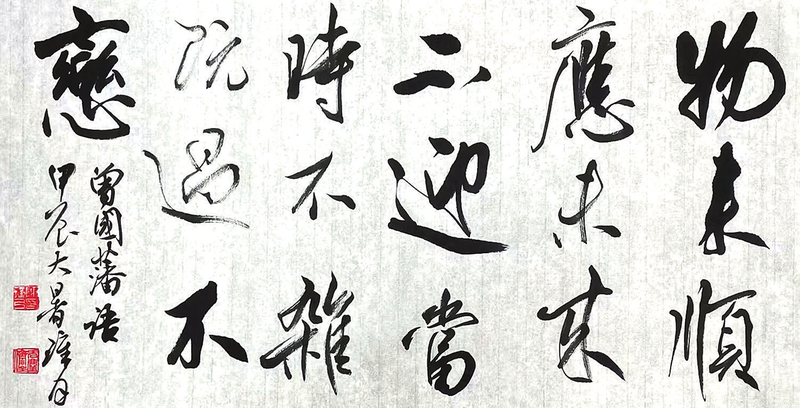 物来順
應未来
不迎當
時不雜
既過不
戀
曾國藩語
甲辰大暑